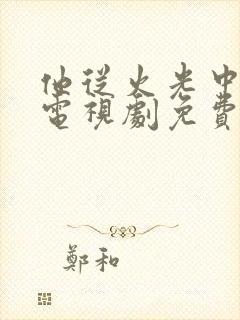 他從火光中
電視劇免費
鄭和